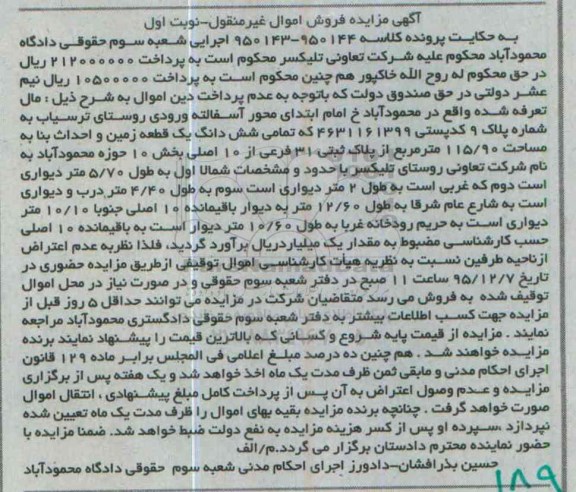 آگهی مزایده فروش اموال غیرمنقول-نوبت اول
به حکایت پرونده کلاسه ۹۵۰۱۴۴-۹۵۰۱۴۳ اجرایی شعبه سوم حقوقی دادگاه
محمودآباد محکوم علیه شرکت تعاونی تلیکسر محکوم است به پرداخت ۲۱۲۰۰۰۰۰۰ ریال
در حق محکوم له روح الله خاکپور هم چنین محکوم است به پرداخت ۱۰۵۰۰۰۰۰ ریال نیم
عشر دولتی در حق صندوق دولت که باتوجه به عدم پرداخت دین اموال به شرح ذیل : مال
تعرفه شده واقع در محمودآباد خ امام ابتدای محور آسفالته ورودی روستای ترسیاب به
شماره پلاک ۹ کدپستی ۴۶۳۱۱۶۱۳۹۹ که تمامی شش دانگ یک قطعه زمین و احداث بنا به
مساحت ۱۱۵/۹۰ مترمربع از پلاک ثبتی ۳۱ فرعی از ۱۰ اصلی بخش ۱۰ حوزه محمودآباد به
نام شرکت تعاونی روستای تلیکسر با حدود و مشخصات شمالا اول به طول ۵/۷۰ متر دیواری
است دوم که غربی است به طول ۲ متر دیواری است سوم به طول ۴/۴۰ متر درب و دیواری
است به شارع عام شرقا به طول ۱۲/۶۰ متر به دیوار باقیمانده ۱۰ اصلی جنوبا ۱۰/۱۰ متر
دیواری است به حریم رودخانه غربا به طول ۱۰/۶۰ متر دیوار است به باقیمانده ۱۰ اصلی
حسب کارشناسی مضبوط به مقدار یک میلیاردریال برآورد گردید، فلذا نظربه عدم اعتراض
ازناحیه طرفین نسبت به نظریه هیأت کارشناسی اموال توقیفی ازطریق مزایده حضوری در
تاریخ ۹۵/۱۲/۷ ساعت ۱۱ صبح در دفتر شعبه سوم حقوقی و در صورت نیاز در محل اموال
توقیف شده به فروش می رسد متقاضیان شرکت در مزایده می توانند حداقل ۵ روز قبل از
مزایده جهت کسب اطلاعات بیشتر به دفتر شعبه سوم حقوقی دادگستری محمودآباد مراجعه
نمایند . مزایده از قیمت پایه شروع و کسانی که بالاترین قیمت را پیشنهاد نمایند برنده
مزایده خواهند شد . هم چنین ده درصد مبلغ اعلامی فی المجلس برابر ماده ۱۲۹ قانون
اجرای احکام مدنی و مابقی ثمن ظرف مدت یک ماه اخذ خواهد شد و یک هفته پس از برگزاری
مزایده و عدم وصول اعتراض به آن پس از پرداخت کامل مبلغ پیشنهادی ، انتقال اموال
صورت خواهد گرفت . چنانچه برنده مزایده بقیه بهای اموال را ظرف مدت یک ماه تعیین شده
نپردازد ،سپرده او پس از کسر هزینه مزایده به نفع دولت ضبط خواهد شد. ضمنا مزایده با
حضور نماینده محترم دادستان برگزار می گردد.م/الف
حسین بذرافشان-دادورز اجرای احکام مدنی شعبه سوم حقوقی دادگاه محمودآباد
۱۸۹